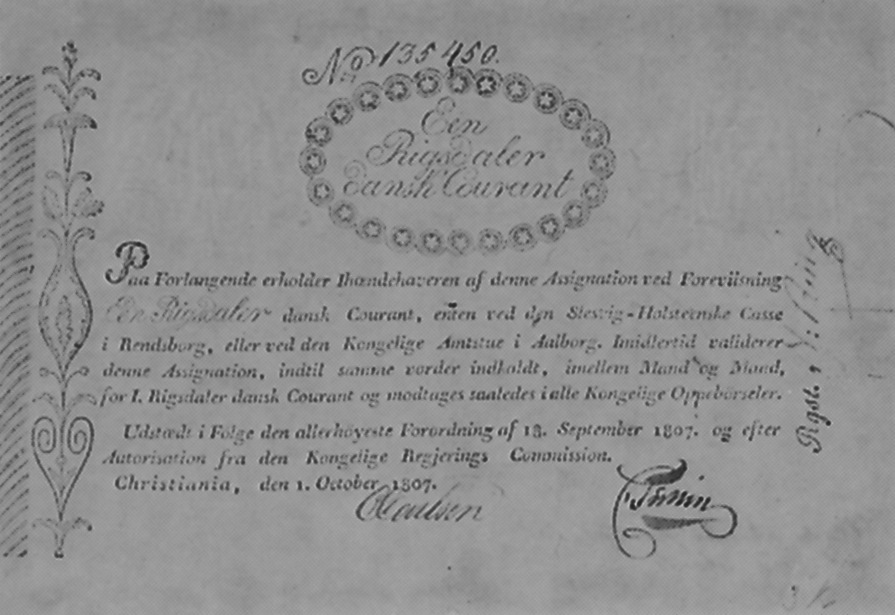 No 135450.
Een
Rigsdaler
dansk Courant
Paa Forlangende erholder Ihændehaveren af denne Assignation ved Foreviisning
Een Rigsdaler dansk Courant, enten ved den Slesvig-Holsteenske Casse
i Rendsborg, eller ved den Kongelige Amtstue i Aalborg. Imidlertid validerer
denne Assignation, indtil samme vorder indholdt, imellem Mand og Mand,
for 1. Rigsdaler dansk Courant og modtages saaledes i alle Kongelige Oppebörseler.
Udstædt i Fölge den allerhöyeste Forordning af 18. September 1807. og efter
Autorisation fra den Kongelige Regjerings Commission.
Christiania, den 1. October 1807.